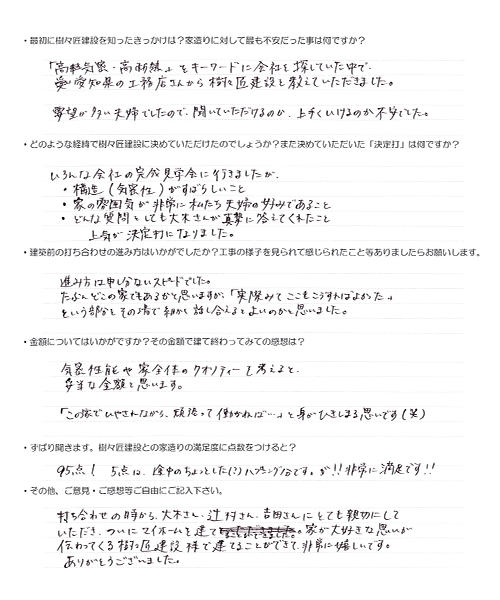 ・最初に樹々匠建設を知ったきっかけは？家造りに対して最も不安だった事は何ですか？
「高気密・高断熱」をキーワードに会社を探していた中で、
愛知県の工務店さんから樹々匠建設を教えていただきました。
要望が多い夫婦でしたので、聞いていただけるのか、上手くいけるのか不安でした。
・どのような経緯で樹々匠建設に決めていただけたのでしょうか？また決めていただいた「決定打」は何ですか？
いろんな会社の完成見学会に行きましたが、
・構造（気密性）がすばらしいこと
・家の雰囲気が非常に私たち夫婦の好みであること
・どんな質問をしても大木さんが真摯に答えてくれたこと
上気が決定打になりました。
・建築前の打ち合わせの進み方はいかがでしたか？工事の様子を見られて感じられたこと等ありましたらお願いします。
進み方は申し分ないスピードでした。
たぶんどこの家でもあるかと思いますが、「実際みてここをこうすればよかった」
という部分をその場で細かく話し合えるとよいのかと思いました。
・金額についてはいかがですか？その金額で建て終わってみての感想は？
気密性能や家全体のクオリティーを考えると、
妥当な金額と思います。
「この家でひやされながら、頑張って働かねば…」と身がひきしまる思いです（笑）
・ずばり聞きます。樹々匠建設との家造りの満足度に点数をつけると？
95点！ 5点は、途中のちょっとした（？）ハプニング分です。が!!非常に満足です!!
・その他、ご意見・ご感想等ご自由にご記入下さい。
打ち合わせの時から、大木さん、辻村さん、吉田さんにとても親切にして
いただき、ついにマイホームを建て。家が大好きな思いが
伝わってくる樹々匠建設様で建てることができて、非常に嬉しいです。
ありがとうございました。